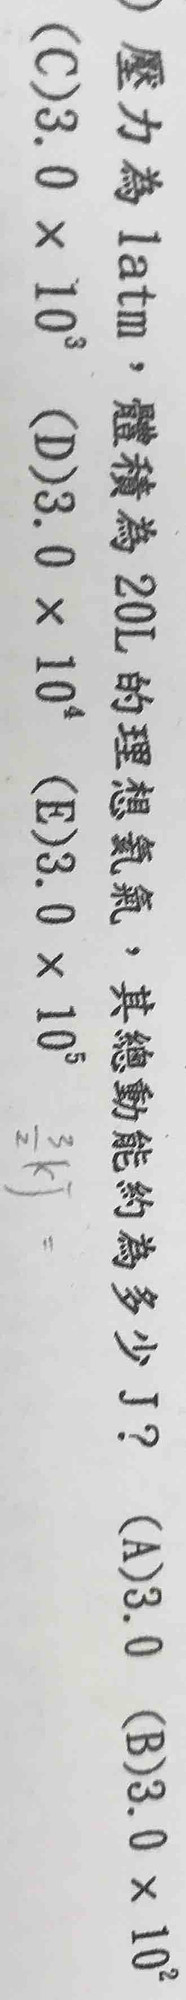 ) 壓力為 1atm，體積為 20L 的理想氦氣，其總動能約為多少 J？ (A)3.0 (B)3.0 × 10²
(C)3.0 × 10³ (D)3.0 × 10⁴ (E)3.0 × 10⁵ 3/2 kT =